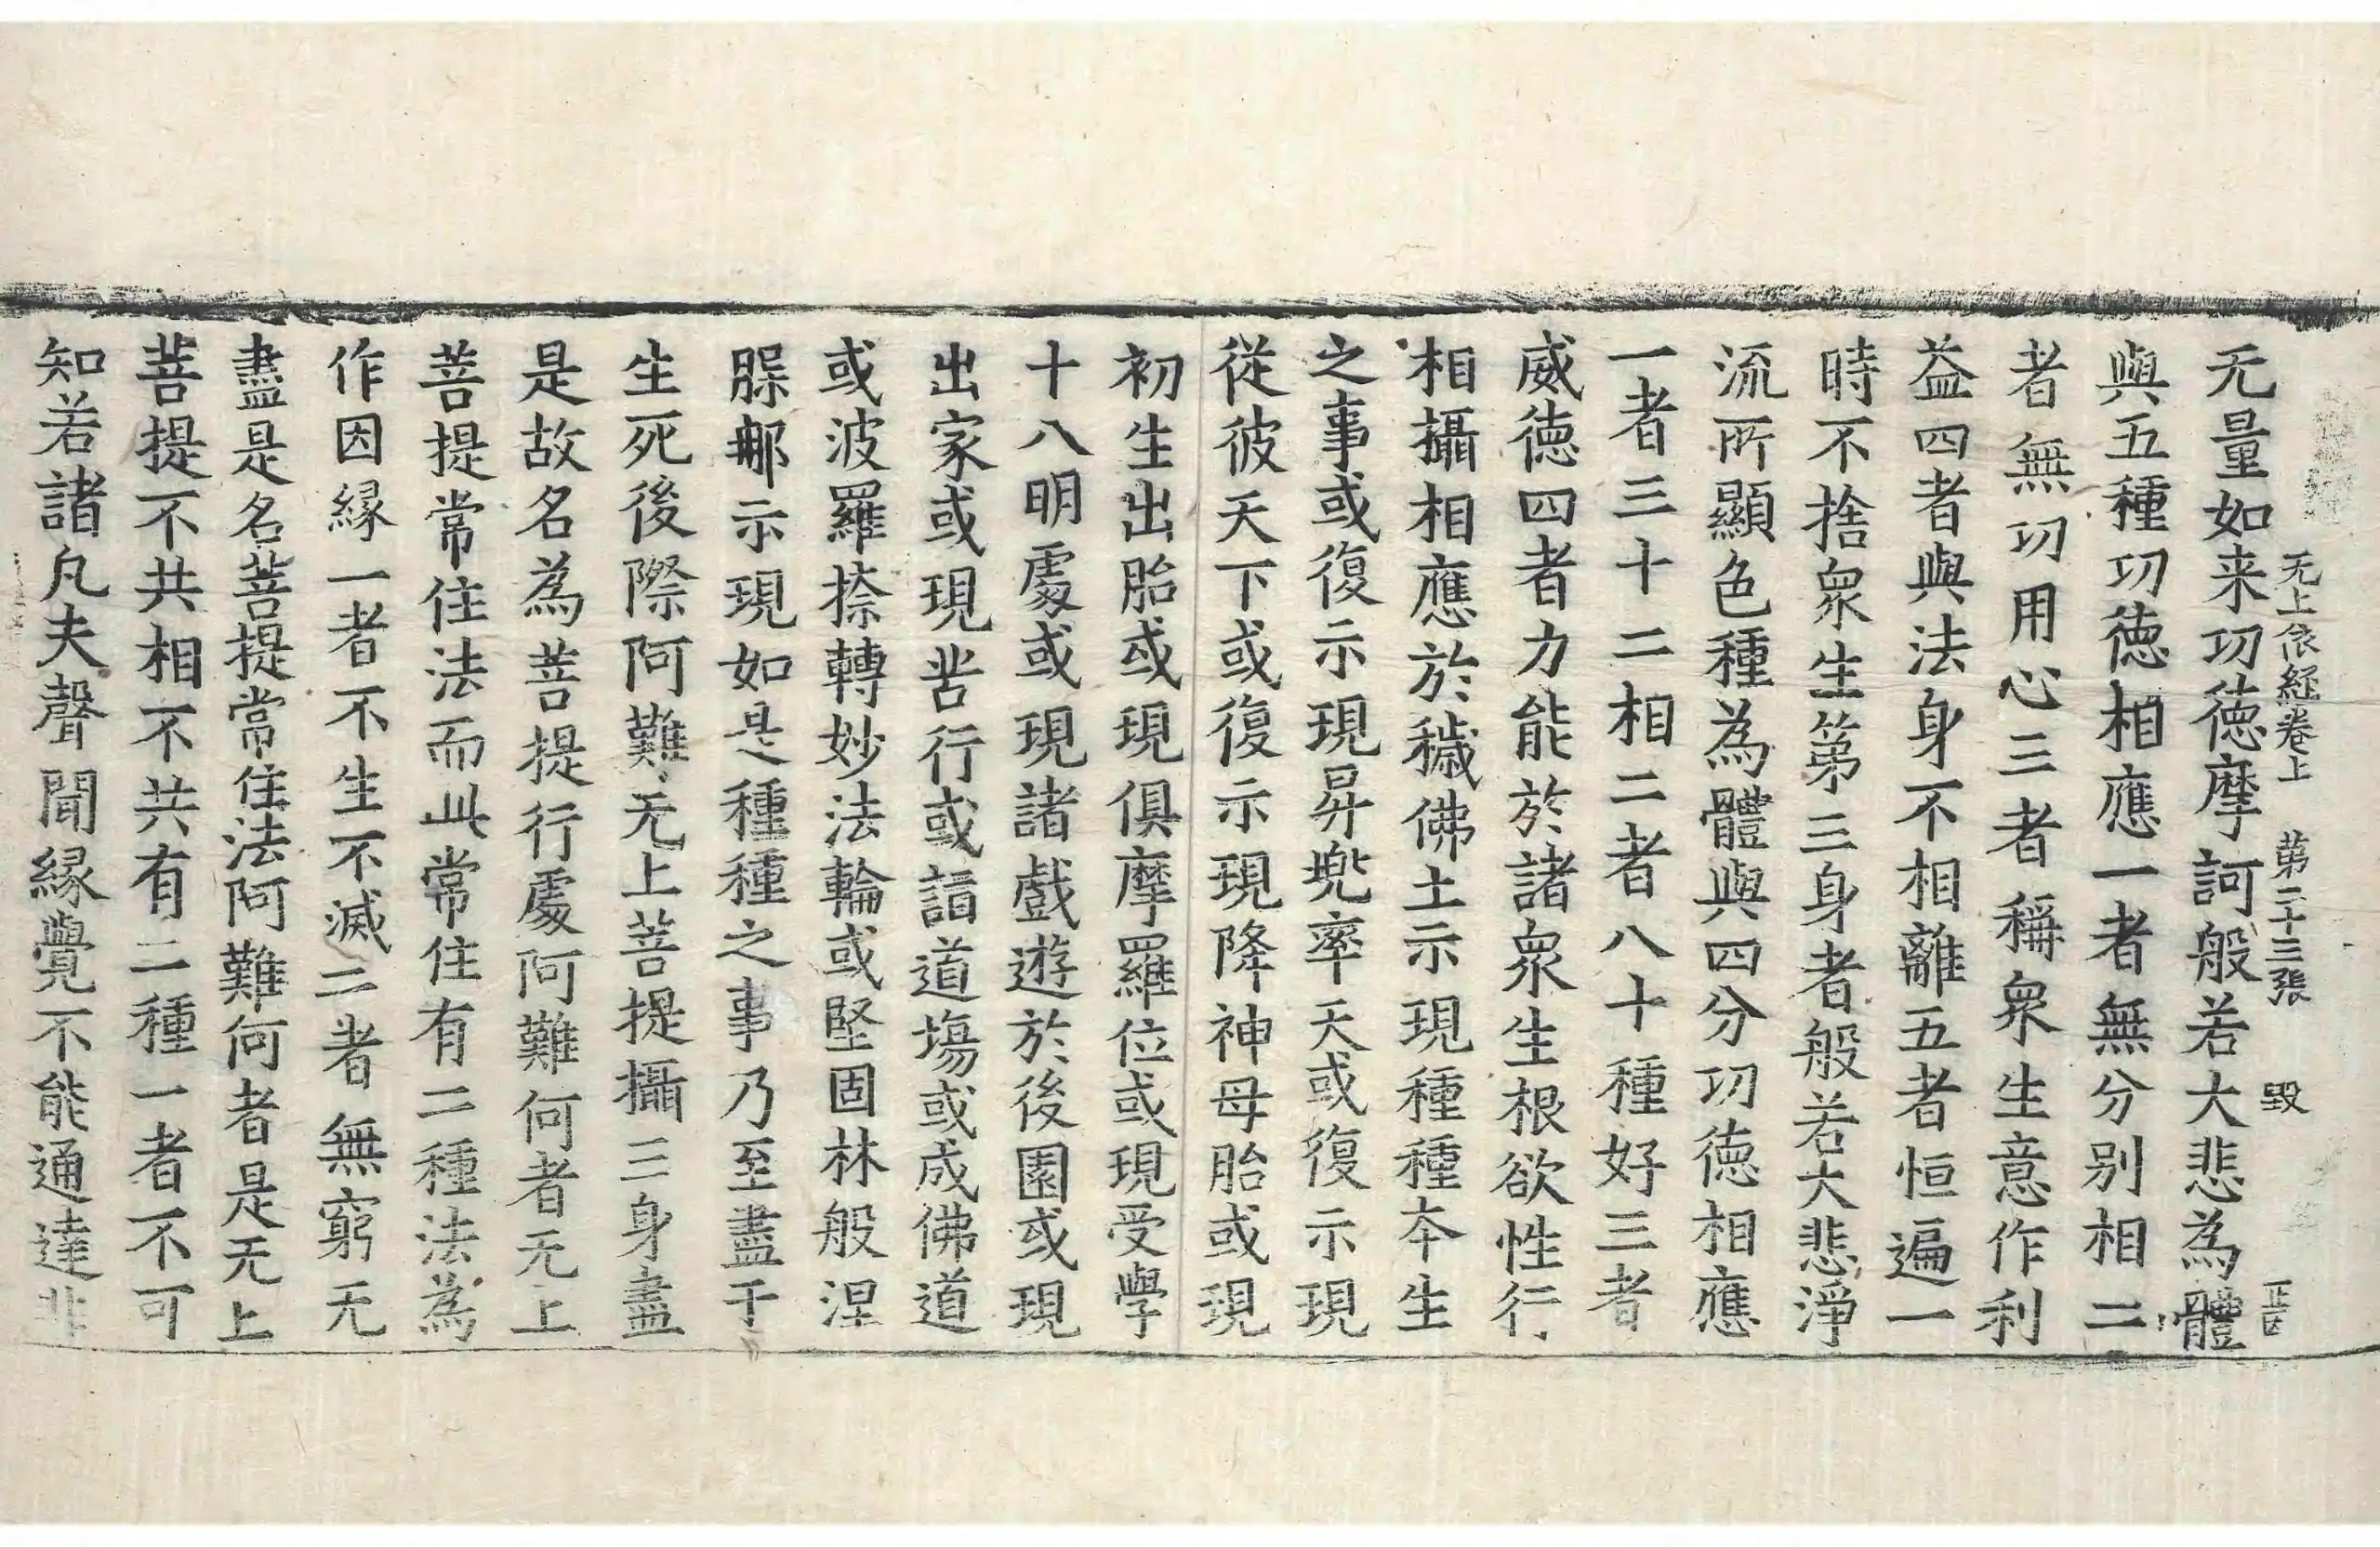 无上依經卷上 第二十三張 毀 正固
无量如来功德摩訶般若大悲為體
與五種功德相應一者無分别相二
者無功用心三者稱衆生意作利
益四者與法身不相離五者恒遍一
時不捨衆生第三身者般若大悲淨
流所顯色種為體與四分功德相應
一者三十二相二者八十種好三者
威德四者力能於諸衆生根欲性行
相攝相應於穢佛土示現種種本生
之事或復示現昇兠率天或復示現
從彼天下或復示現降神母胎或現
初生出胎或現俱摩羅位或現受學
十八明處或現諸戲遊於後園或現
出家或現苦行或詣道塲或成佛道
或波羅捺轉妙法輪或堅固林般涅
脲那示現如是種種之事乃至盡于
生死後際阿難无上菩提攝三身盡
是故名為菩提行處阿難何者无上
菩提常住法而此常住有二種法為
作因縁一者不生不滅二者無窮无
盡是名菩提常住法阿難何者是无上
菩提不共相不共有二種一者不可
知若諸凡夫聲聞縁覺不能通達非